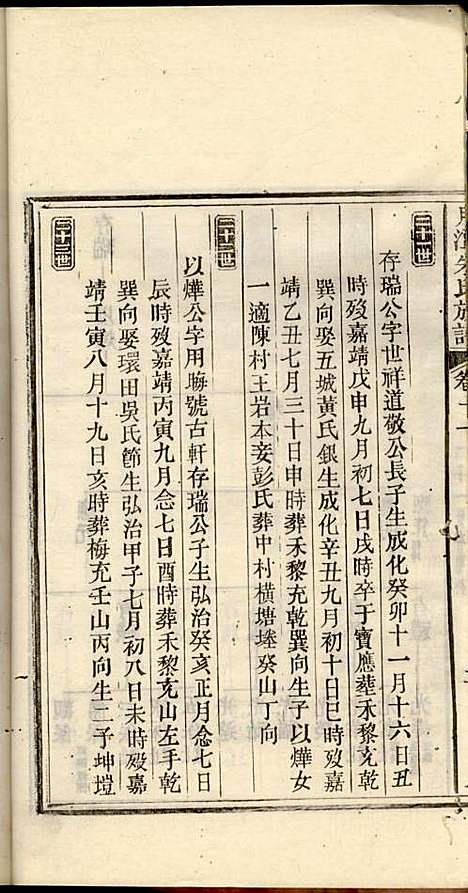 朱氏族譜
卷二
二十一世
存瑞公字世祥道敬公長子生成化癸卯十一月十六日丑
時歿嘉靖戊申九月初七日戌時卒于寶應葬禾黎充乾
巽向娶五城黃氏銀生成化辛丑九月初十日巳時歿嘉
靖乙丑七月三十日申時葬禾黎充乾巽向生子以燁女
一適陳村王岩本妾彭氏葬中村橫塘塝癸山丁向
二十二世
以燁公字用晦號古軒存瑞公子生弘治癸亥正月念七日
辰時歿嘉靖丙寅九月念七日酉時葬禾黎充山左手乾
巽向娶環田吳氏節生弘治甲子七月初八日未時歿嘉
靖壬寅八月十九日亥時葬梅充壬山丙向生二子坤塏